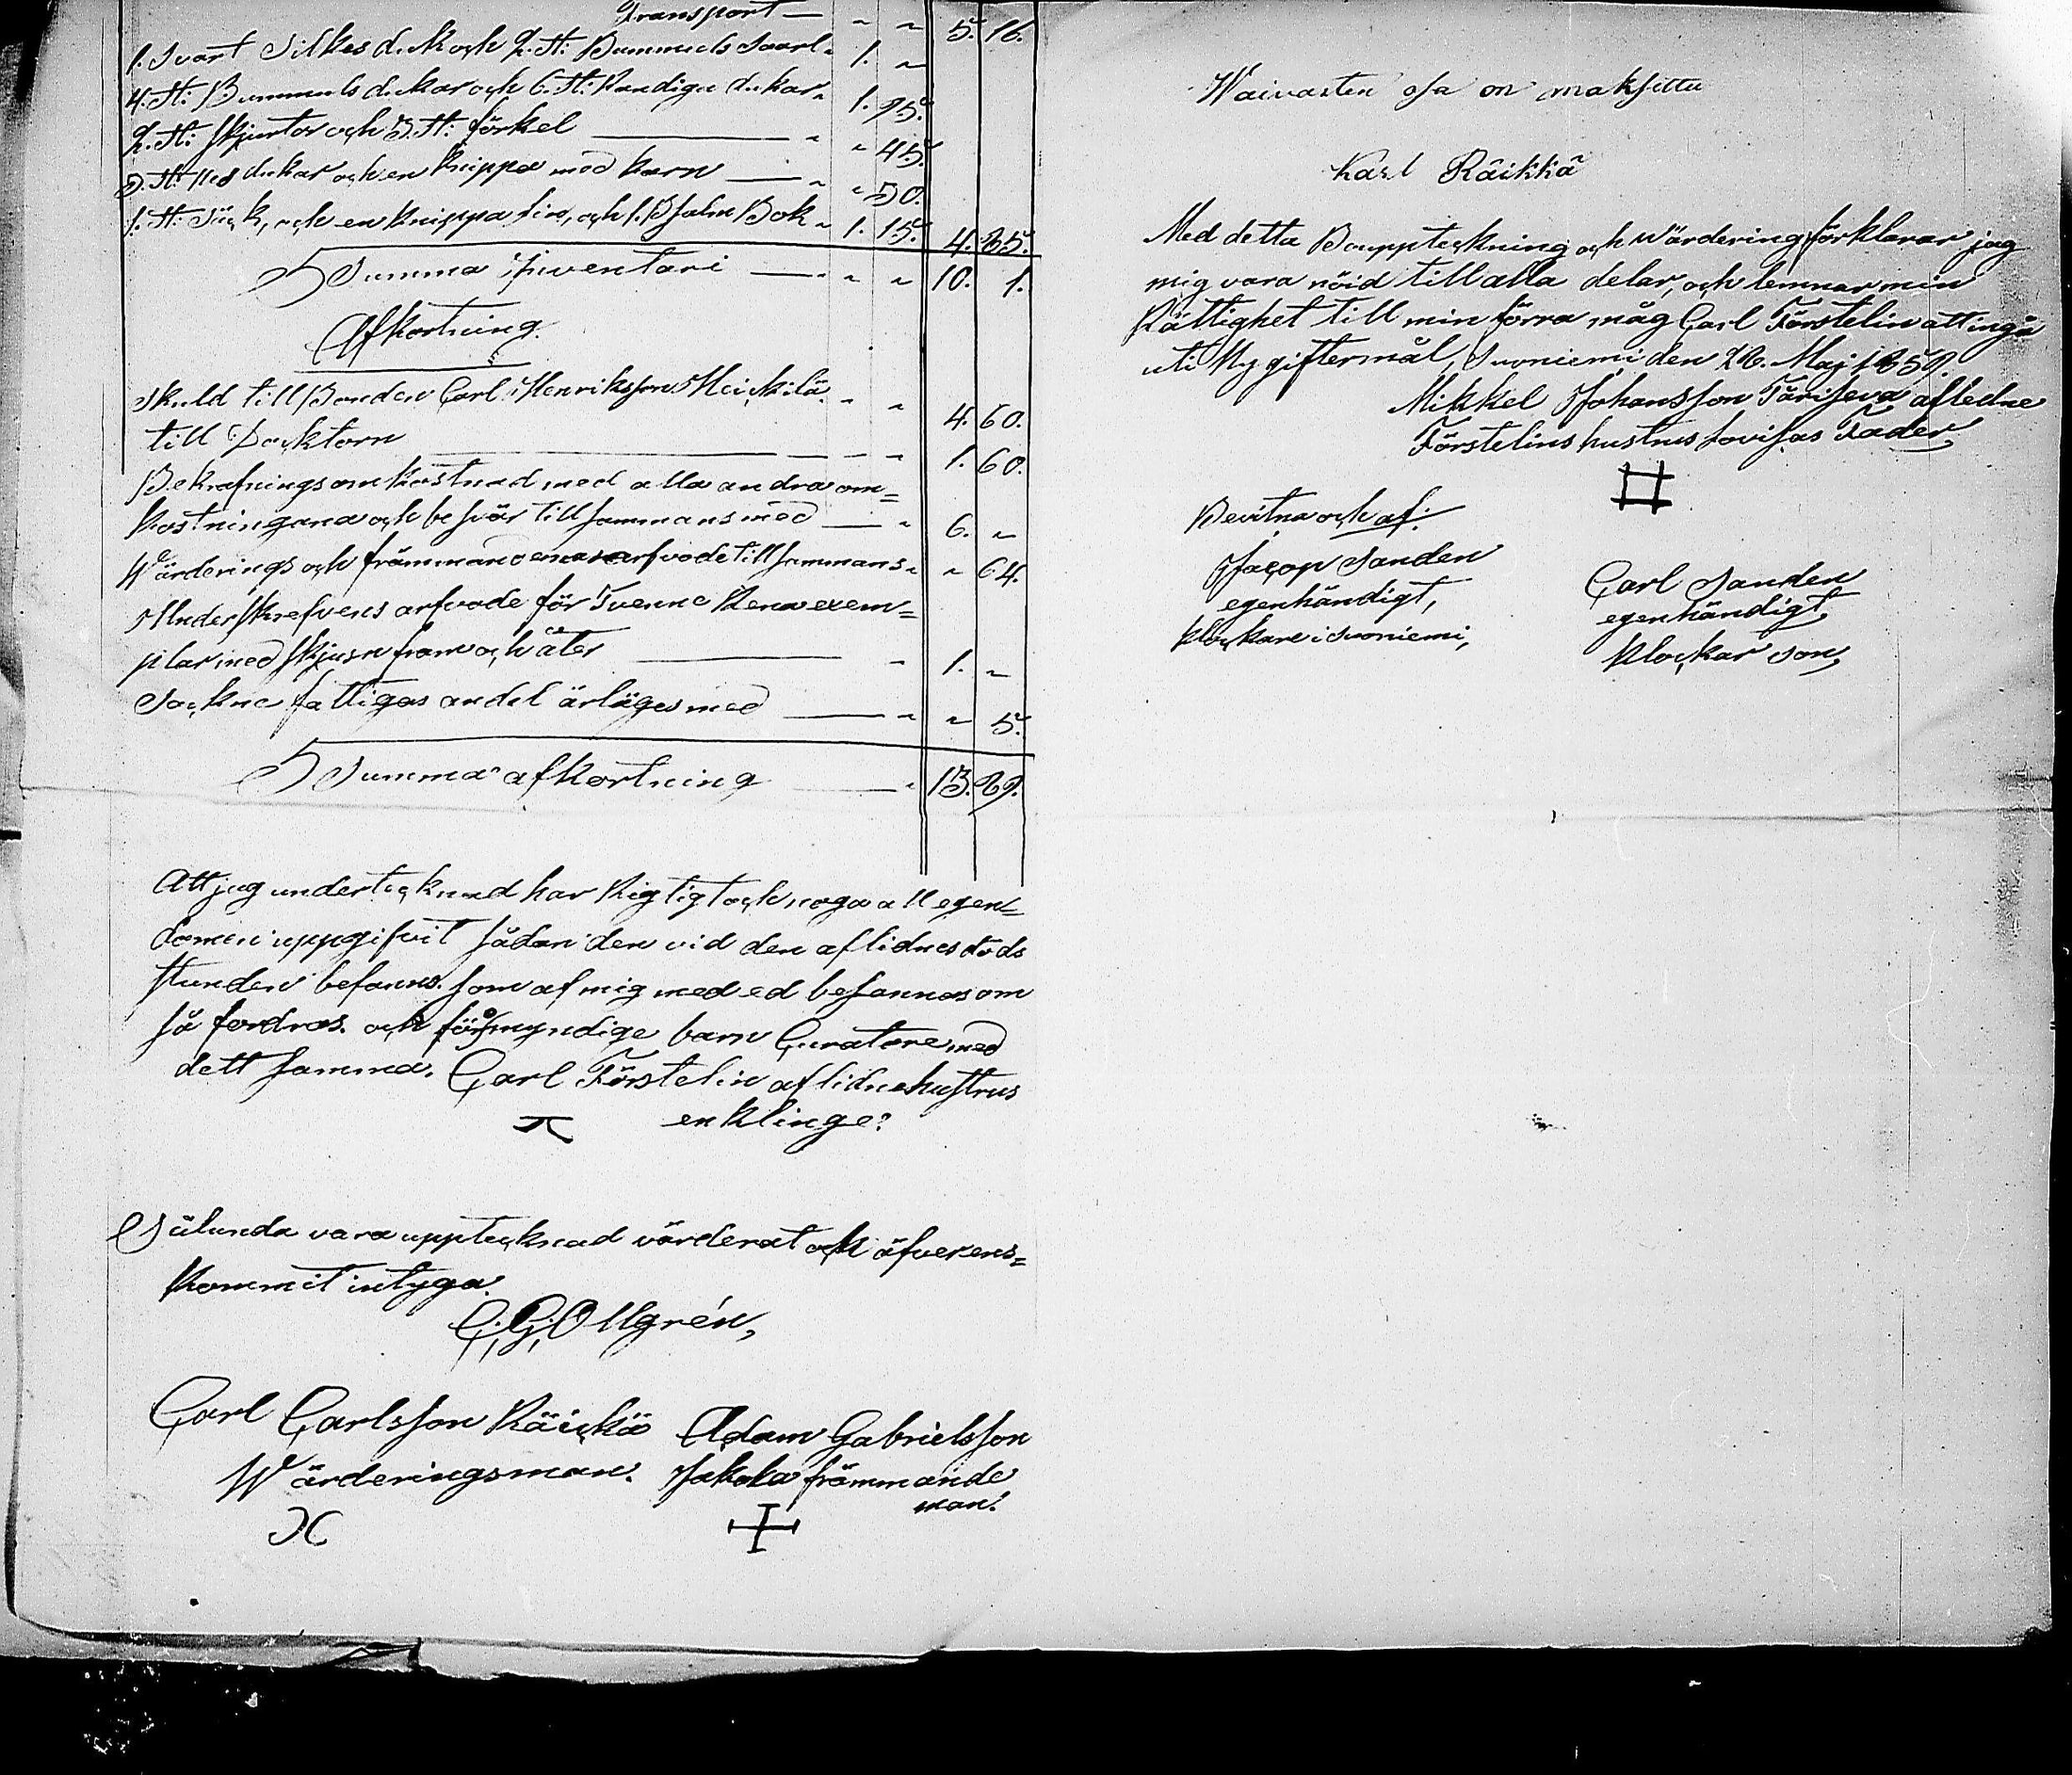 Transport — " " 5. 16.
1. Svart Silkes duk och 2. St: Bummuls " 1. "
4. St: Bummuls dukar och 6. St: Randiga dukar " 1. 25.
2. St: Skjortor och 3. St: förkel — " " 45.
St: dukar och en knippa med karn — " " 50.
1. St: och en knippa lin, och 1. Psalm Bok " 1. 15. 4. 85.
Summa Inventari — " " 10. 1.
Afkortning.
Skuld till Bonden Carl Henriksson Heickilä " " 4. 60.
till Docktorn — " 1. 60.
Bekrafnings omkostnad med alla andra om=
kostningana och besvär till sammans med — " 6. "
Wärderings och främmande arfvode till sammans " " 64.
Underskrefvens arfvode för Tvenne Rena exem=
plar med skjusn fram och åter — " 1. "
Sockne fattigas andel ärläges med — " " 5.
Summa afkortning — " 13. 89.
Att jag undertecknad har Rigtigt och noga all egen=
domen uppgifvit sådan den vid den aflidnes döds
stunden befanns. som af mig med ed besannas om
så fordras. och myndige barn Curatore med
dett samma. Carl Förstelin aflidne hustrus
enklinge.
Sålunda vara upptecknad värderat och äfverens=
kommit intyga.
C. G. Ollgrén,
Carl Carlsson Räickä Adam Gabrielsson
Wärderingsman. Jakola främmande
man.
Waivasten osa on maksettu
Karl Räikkä
Med detta Bouppteckning och wärdering förklarar jag
mig vara nöid till alla delar, och lemnar min
Rättighet till min förra måg Carl Förstelin att ingå
uti Ny giftermål, Suoniemi den 26. Maj 1859.
Mikkel Johansson Tariseva afledne
Förstelins hustrus Lovisas Fader,
Bevitna och af:
Jacop Sanden
egenhändigt,
klockare i Suoniemi,
Carl Sanden
egenhändigt,
Klockar son,